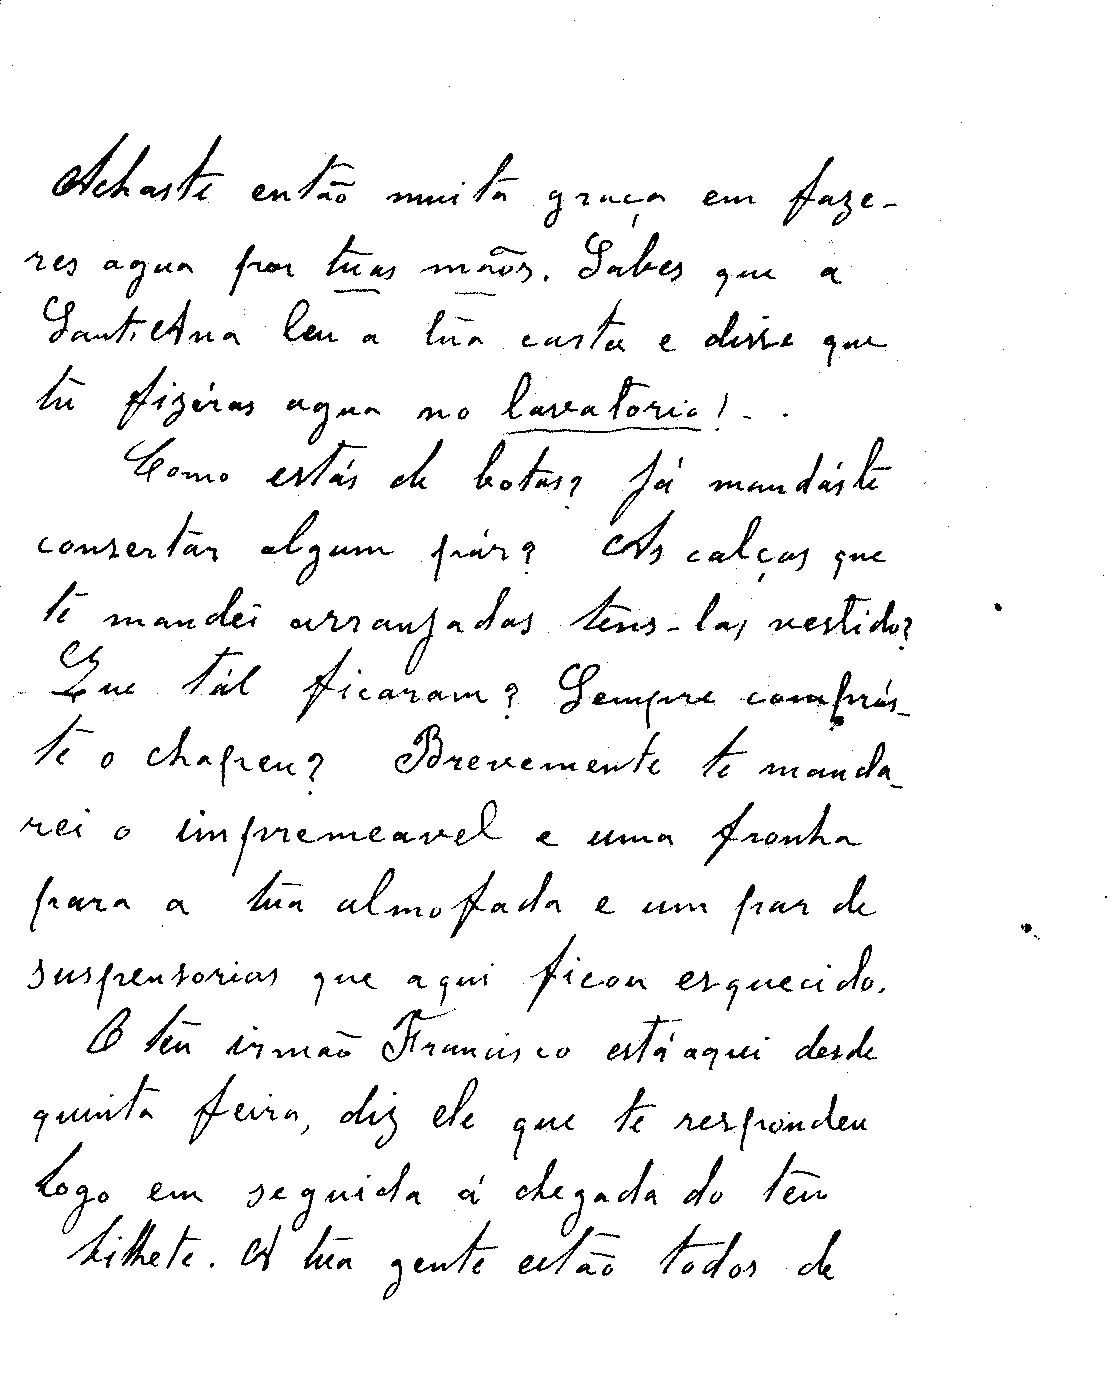 Achaste então muita graça em faze-
res agua por tuas mãos. Sabes que a
Sant'Ana leu a tua carta e disse que
tu fizéras agua no lavatorio!..
Como estás de botas? Já mandáste
consertar algum pár? As calças que
te mandei arranjadas tens-las vestido?
Que tál ficaram? Sempre comprás-
te o chapeu? Brevemente te manda-
rei o impremeavel e uma fronha
para a tua almofada e um par de
suspensorios que aqui ficou esquecido.
O teu irmão Francisco está aqui desde
quinta feira, diz ele que te respondeu
logo em seguida á chegada do teu
bilhete. A tua gente estão todos de